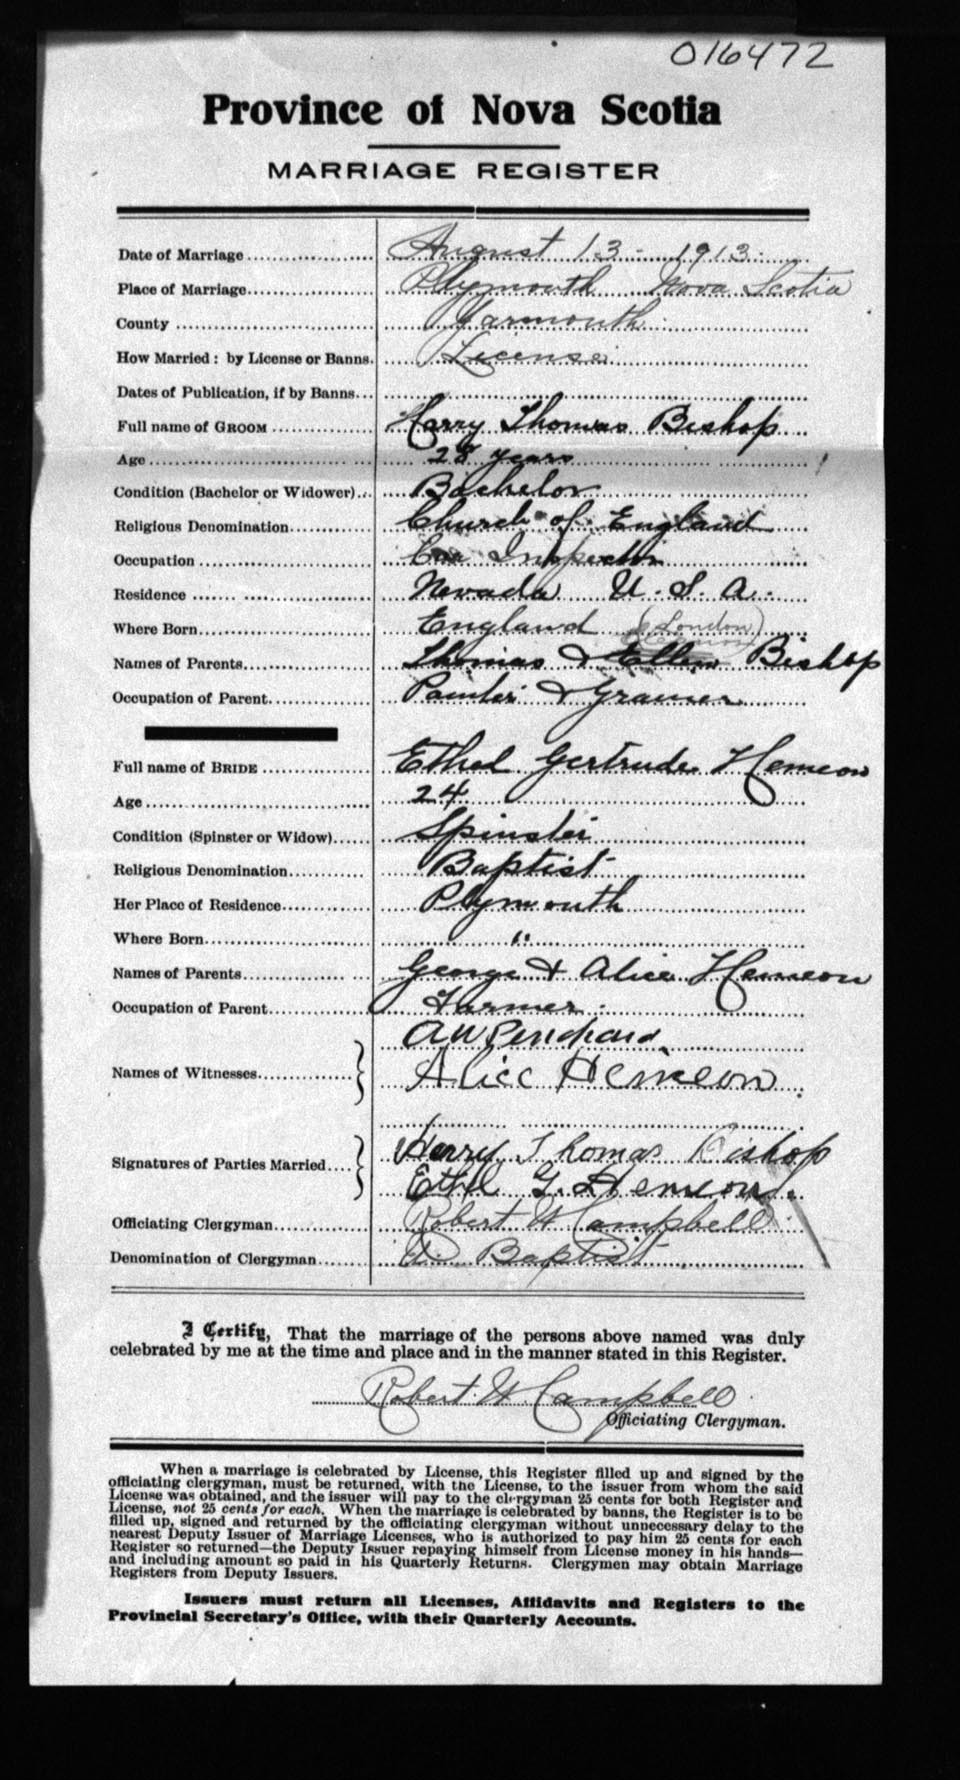 016472
Province of Nova Scotia
MARRIAGE REGISTER
Date of Marriage August 13 - 1913.
Place of Marriage Plymouth Nova Scotia
County Yarmouth
How Married: by License or Banns. License
Dates of Publication, if by Banns
Full name of GROOM Harry Thomas Bishop
Age 28 years
Condition (Bachelor or Widower) Bachelor
Religious Denomination Church of England
Occupation Car Inspector
Residence Nevada U. S. A.
Where Born England (London)
Names of Parents Thomas & Ellen Bishop
Occupation of Parent Painter & Grainer
Full name of BRIDE Ethel Gertrude Hemeon
Age 24
Condition (Spinster or Widow) Spinster
Religious Denomination Baptist
Her Place of Residence Plymouth
Where Born "
Names of Parents George & Alice Hemeon
Occupation of Parent Farmer
A W
Names of Witnesses Alice Hemeon
Signatures of Parties Married Harry Thomas Bishop
Ethel G. Hemeon.
Officiating Clergyman Robert W Campbell
Denomination of Clergyman Baptist
I Certify, That the marriage of the persons above named was duly
celebrated by me at the time and place and in the manner stated in this Register.
Robert W Campbell
Officiating Clergyman.
When a marriage is celebrated by License, this Register filled up and signed by the
officiating clergyman, must be returned, with the License, to the issuer from whom the said
License was obtained, and the issuer will pay to the clergyman 25 cents for both Register and
License, not 25 cents for each. When the marriage is celebrated by banns, the Register is to be
filled up, signed and returned by the officiating clergyman without unnecessary delay to the
nearest Deputy Issuer of Marriage Licenses, who is authorized to pay him 25 cents for each
Register so returned—the Deputy Issuer repaying himself from License money in his hands—
and including amount so paid in his Quarterly Returns. Clergymen may obtain Marriage
Registers from Deputy Issuers.
Issuers must return all Licenses, Affidavits and Registers to the
Provincial Secretary's Office, with their Quarterly Accounts.